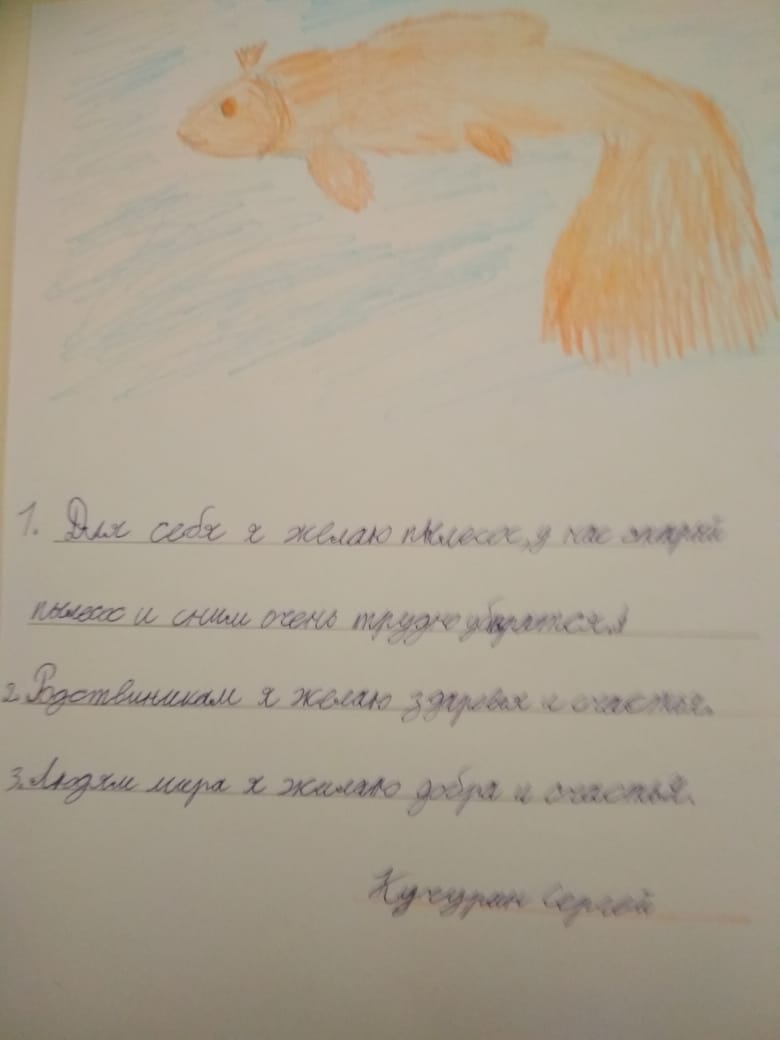 1. Для себя я желаю пылесос, у нас старый
пылесос и сним очень трудно убиратся.
2. Родствиникам я желаю здаровья и счастья.
3. Людям мира я жилаю добра и счастья.
Кучуран Сергей